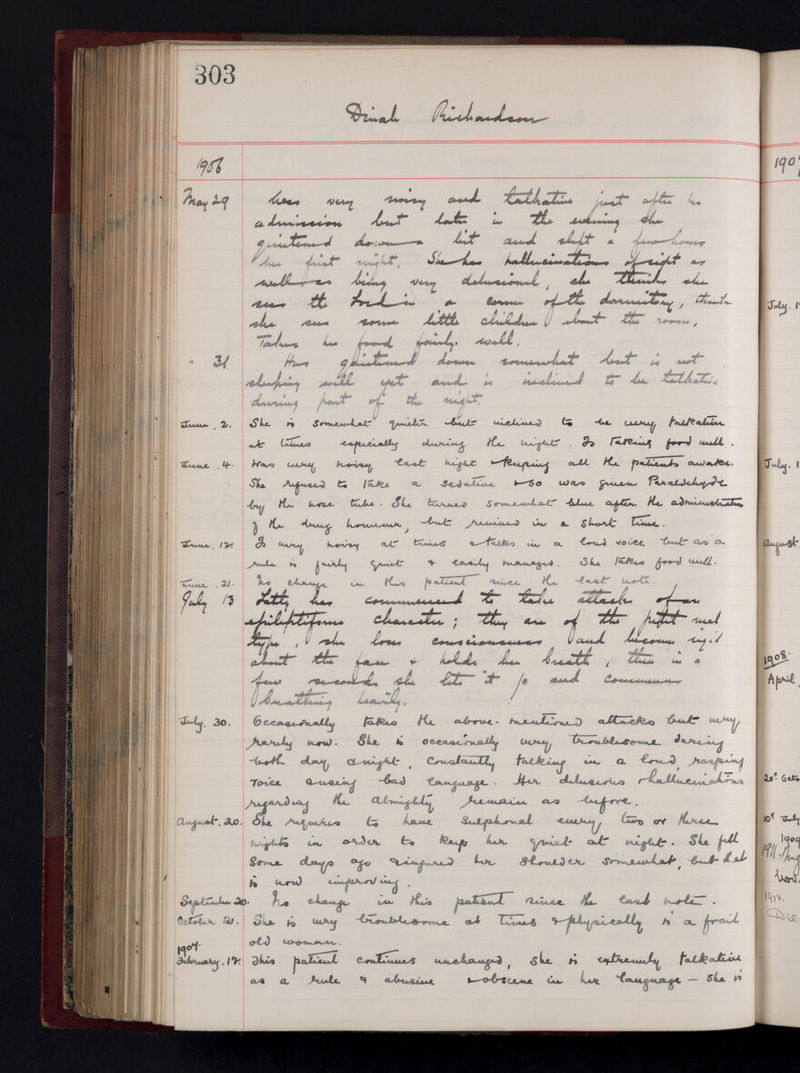 303
Dinah Richardson
1906
May 29 Was very noisy and talkative just after her
admission but later in the evening she
quietened down a bit and slept a few hours
her first night. She has hallucinations of sight as
well as being very delusional, she thinks she
sees the Lord in a corner of the dormitory, thinks
she sees some little children about the room,
Takes her food fairly well.
" 31 Has quietened down somewhat but is not
sleeping well yet and is inclined to be talkative
during part of the night.
June. 2. She is somewhat quieter but inclined to be very talkative
at times especially during the night. Is taking food well.
June. 4. Was very noisy last night & keeping all the patients awake.
She refused to take a sedative & so was given Paraldehyde
by the nose tube. She turned somewhat blue after the administration
of the drug however, but revived in a short time.
June. 12. Is very noisy at times & talks in a loud voice but as a
rule is fairly quiet & easily managed. She takes food well.
June. 21. No change in this patient since the last note.
July 13 has commenced to take attacks of an
epileptiform character; they are of the petit mal
type, she loses consciousness and becomes rigid
about the face & holds her breath, then in a
few seconds she lets it go and commences
breathing heavily.
July. 30. Occasionally takes the above-mentioned attacks but very
rarely now. She is occasionally very troublesome during
both day & night, constantly talking in a loud, rasping
voice & using bad language. Her delusions & hallucinations
regarding the Almighty remain as before.
August. 20. She requires to have Sulphonal every two or three
nights in order to keep her quiet at night. She fell
some days ago & injured her shoulder somewhat, but that
is now improving.
September 20. No change in this patient since the last note.
October 20. She is very troublesome at times & physically is a frail
old woman.
1907.
February. 12. This patient continues unchanged, she is extremely talkative
as a rule & abusive & obscene in her language – She is
1907
July. 1
July. 1
August
1908.
April
July
1909
1911
1912.
Dec